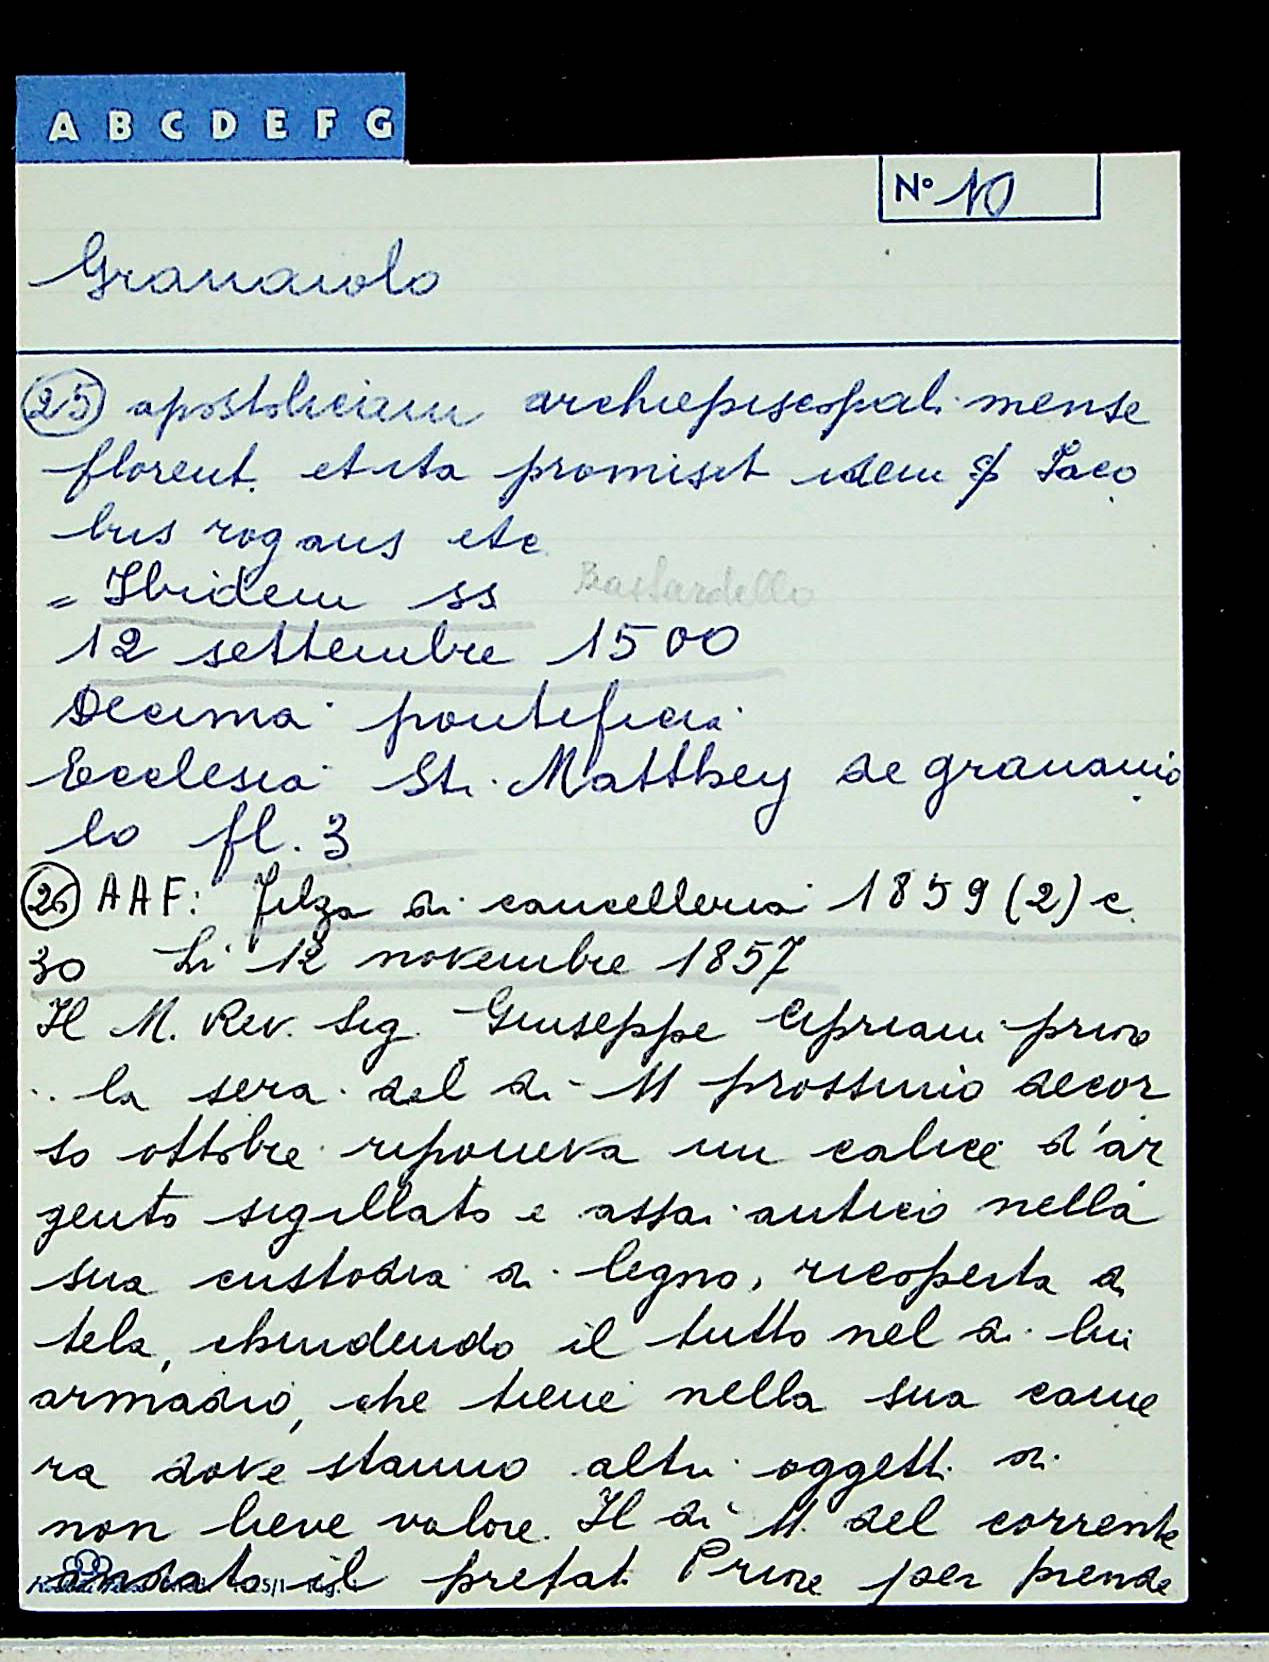 A B C D E F G
N° 10
Granaiolo
25 apostolicam archiepiscopali mense
florent. et ita promisit idem Iaco
bus rogans etc
= Ibidem ss Bastardello
12 settembre 1500
Decima pontificia
Ecclesia Sti. Matthey de granaio
lo fl. 3
26 AAF: Filza di cancelleria 1859 (2) c.
30 Li 12 novembre 1857
Il M. Rev. Sig. Giuseppe Cipriani priore
.. la sera del di 11 prossimo decor
so ottobre riponeva un calice d'ar
gento sigillato e assai antico nella
sua custodia di legno, ricoperta di
tela, chiudendo il tutto nel di lui
armadio, che tiene nella sua came
ra dove stanno altri oggetti di
non lieve valore. Il dì 11. del corrente
andato il prefat. Priore per prende